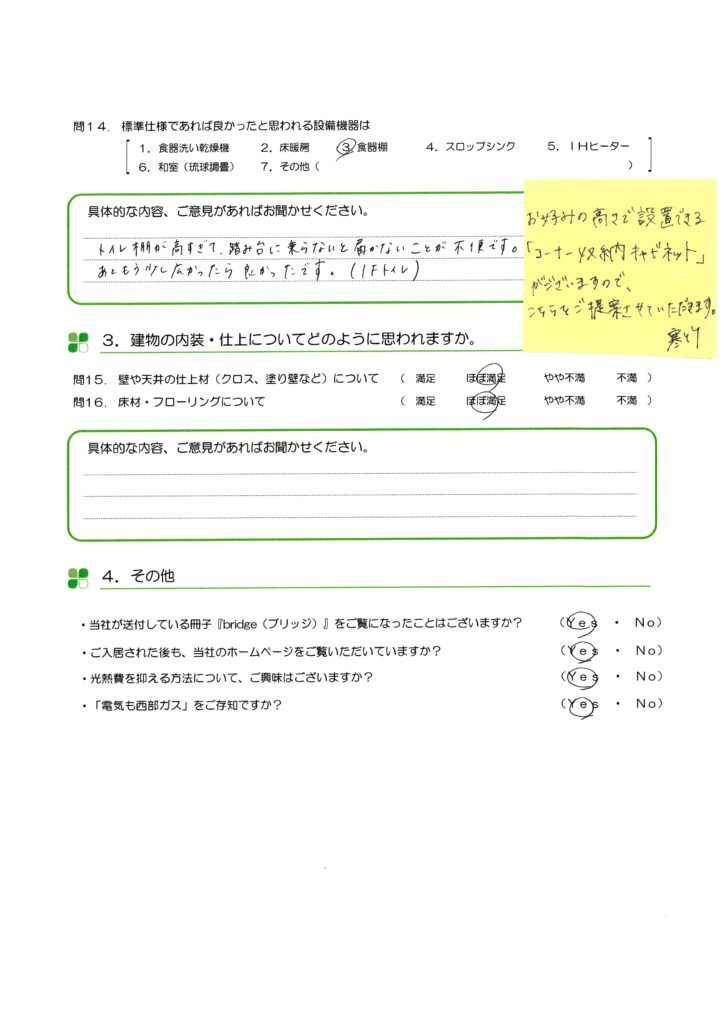 問14. 標準仕様であれば良かったと思われる設備機器は
1. 食器洗い乾燥機 2. 床暖房 3. 食器棚 4. スロップシンク 5. IHヒーター
6. 和室（琉球調畳） 7. その他（ ）
具体的な内容、ご意見があればお聞かせください。
トイレ棚が高すぎて、踏み台に乗らないと届かないことが不便です。
あともう少し広かったら良かったです。(1Fトイレ)
お好みの高さで設置できる
「コーナー収納キャビネット」
がございますので、
こちらをご提案させていただきます。
3. 建物の内装・仕上についてどのように思われますか。
問15. 壁や天井の仕上材（クロス、塗り壁など）について （ 満足 ほぼ満足 やや不満 不満 ）
問16. 床材・フローリングについて （ 満足 ほぼ満足 やや不満 不満 ）
具体的な内容、ご意見があればお聞かせください。
4. その他
・当社が送付している冊子『bridge（ブリッジ）』をご覧になったことはございますか？ （Yes ・ No）
・ご入居された後も、当社のホームページをご覧いただいていますか？ （Yes ・ No）
・光熱費を抑える方法について、ご興味はございますか？ （Yes ・ No）
・「電気も西部ガス」をご存知ですか？ （Yes ・ No）